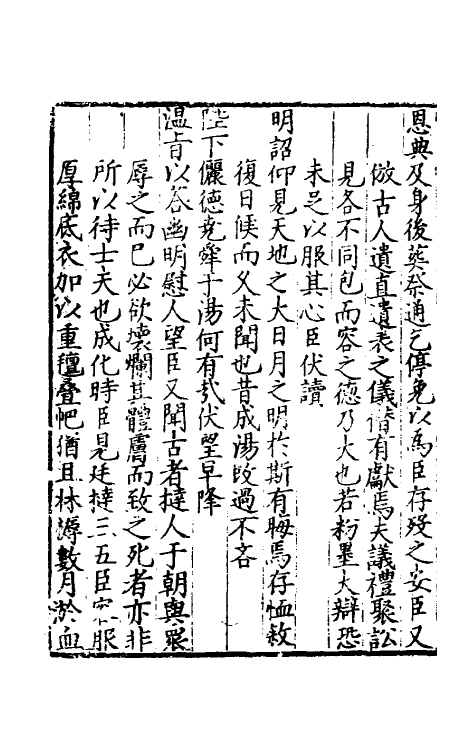 恩典及身後葬祭通乞停免以爲臣存歿之安臣又
倣古人遺直遺表之儀僭有獻焉夫議禮聚訟
見各不同包而容之德乃大也若粉墨大辯恐
未足以服其心臣伏讀
明詔仰見天地之大日月之明於斯有晦焉存恤敘
復日候而久未聞也昔成湯改過不吝
陛下儷德堯舜于湯何有哉伏望早降
溫旨以答幽明慰人望臣又聞古者撻人于朝與衆
辱之而已必欲壞爛其體膚而致之死者亦非
所以待士夫也成化時臣見廷撻三五臣容服
厚綿底衣加以重氊疊帊猶且牀溽數月淤血